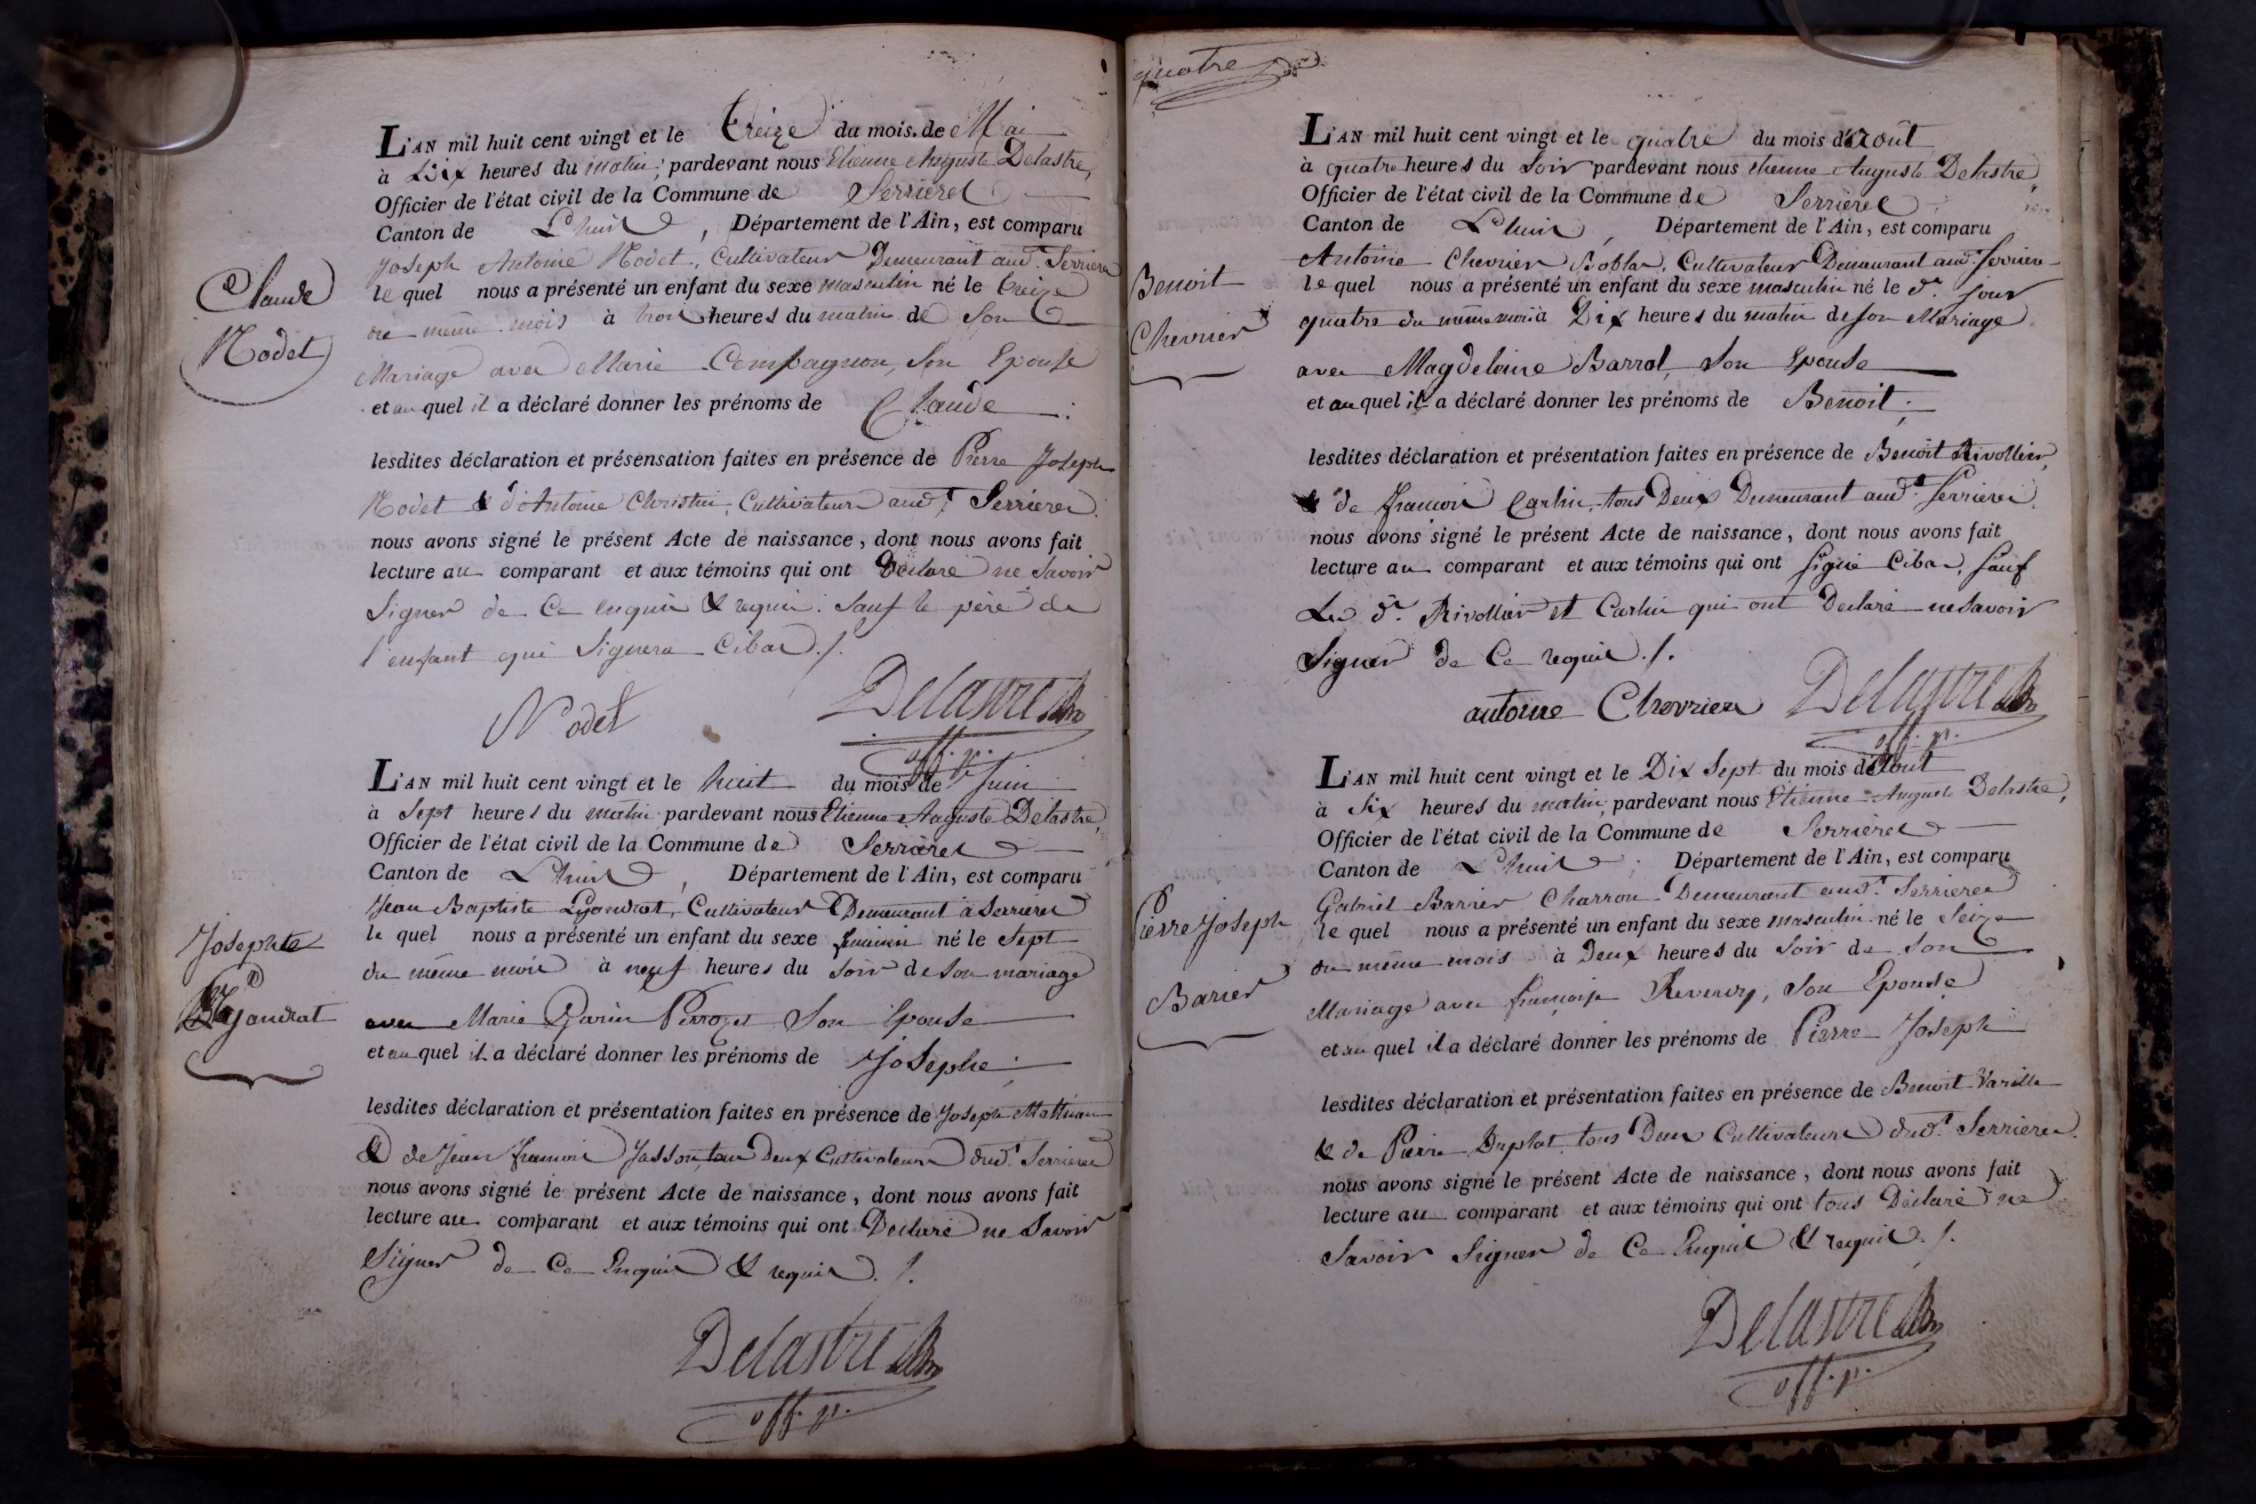 L'AN mil huit cent vingt et le treize du mois de Mai
à Dix heures du matin, pardevant nous Etienne Auguste Delastre,
Officier de l'état civil de la Commune de Serrieres
Canton de Lhuis, Département de l'Ain, est comparu
Joseph Antoine Nodet, Cultivateur Demeurant aud.t Serrieres
Claude
Nodet
le quel nous a présenté un enfant du sexe masculin né le treize
du même mois à trois heures du matin de Son
Mariage avec Marie Compagnon, Son Epouse
et au quel il a déclaré donner les prénoms de Claude
lesdites déclaration et présensation faites en présence de Pierre Joseph
Nodet & d'Antoine Christin, Cultivateurs aud.t Serrieres.
nous avons signé le présent Acte de naissance, dont nous avons fait
lecture au comparant et aux témoins qui ont Déclaré ne Savoir
Signer de Ce enquis & requis. Sauf le père de
l'enfant qui Signera Cibas ./.
Nodet Delastre
off. p.
L'AN mil huit cent vingt et le huit du mois de Juin
à Sept heures du matin pardevant nous Etienne Auguste Delastre,
Officier de l'état civil de la Commune de Serrieres
Canton de Lhuis, Département de l'Ain, est comparu
Jean Baptiste Gyoudrat, Cultivateur Demeurant à Serrieres
Josephte
le quel nous a présenté un enfant du sexe feminin né le Sept
du même mois à neuf heures du Soir de Son mariage
avec Marie Garin Perrozet Son Epouse
et au quel il a déclaré donner les prénoms de Josephe
lesdites déclaration et présentation faites en présence de Joseph Mathieu
& de Jean François Jasson, tous Deux Cultivateurs dud.t Serrieres
nous avons signé le présent Acte de naissance, dont nous avons fait
lecture au comparant et aux témoins qui ont Déclaré ne Savoir
Signer de Ce Enquis & requis ./.
Delastre
off. p.
quatre
L'AN mil huit cent vingt et le quatre du mois d'Août
à quatre heures du Soir pardevant nous etienne Auguste Delastre,
Officier de l'état civil de la Commune de Serrieres
Canton de Lhuis, Département de l'Ain, est comparu
Antoine Chevrier Cultivateur Demeurant aud.t Serrieres
Benoit
Chevrier
le quel nous a présenté un enfant du sexe masculin né le d.t jour
quatre du même mois à Dix heures du matin de Son Mariage
avec Magdelaine Barral, Son Epouse
et au quel il a déclaré donner les prénoms de Benoit
lesdites déclaration et présentation faites en présence de Benoit Rivollier,
& de françois Carlin, tous Deux Demeurant aud.t Serrieres
nous avons signé le présent Acte de naissance, dont nous avons fait
lecture au comparant et aux témoins qui ont Signé Cibas, Sauf
Les d.t Rivollier et Carlin qui ont Declaré ne Savoir
Signer de Ce requis ./.
antoine Chevrier Delastre
off. p.
L'AN mil huit cent vingt et le Dix Sept du mois d'Aout
à Six heures du matin, pardevant nous Etienne Auguste Delastre,
Officier de l'état civil de la Commune de Serrieres
Canton de Lhuis, Département de l'Ain, est comparu
Gabriel Barrier Charron Demeurant aud.t Serrieres
Pierre Joseph
Barier
le quel nous a présenté un enfant du sexe masculin né le Seize
du même mois à Deux heures du Soir de Son
Mariage avec françoise Son Epouse
et au quel il a déclaré donner les prénoms de Pierre Joseph
lesdites déclaration et présentation faites en présence de Benoit Varille
& de Pierre tous Deux Cultivateurs dud.t Serrieres.
nous avons signé le présent Acte de naissance, dont nous avons fait
lecture au comparant et aux témoins qui ont tous Déclaré ne
Savoir Signer de Ce Enquis & requis ./.
Delastre
off. p.